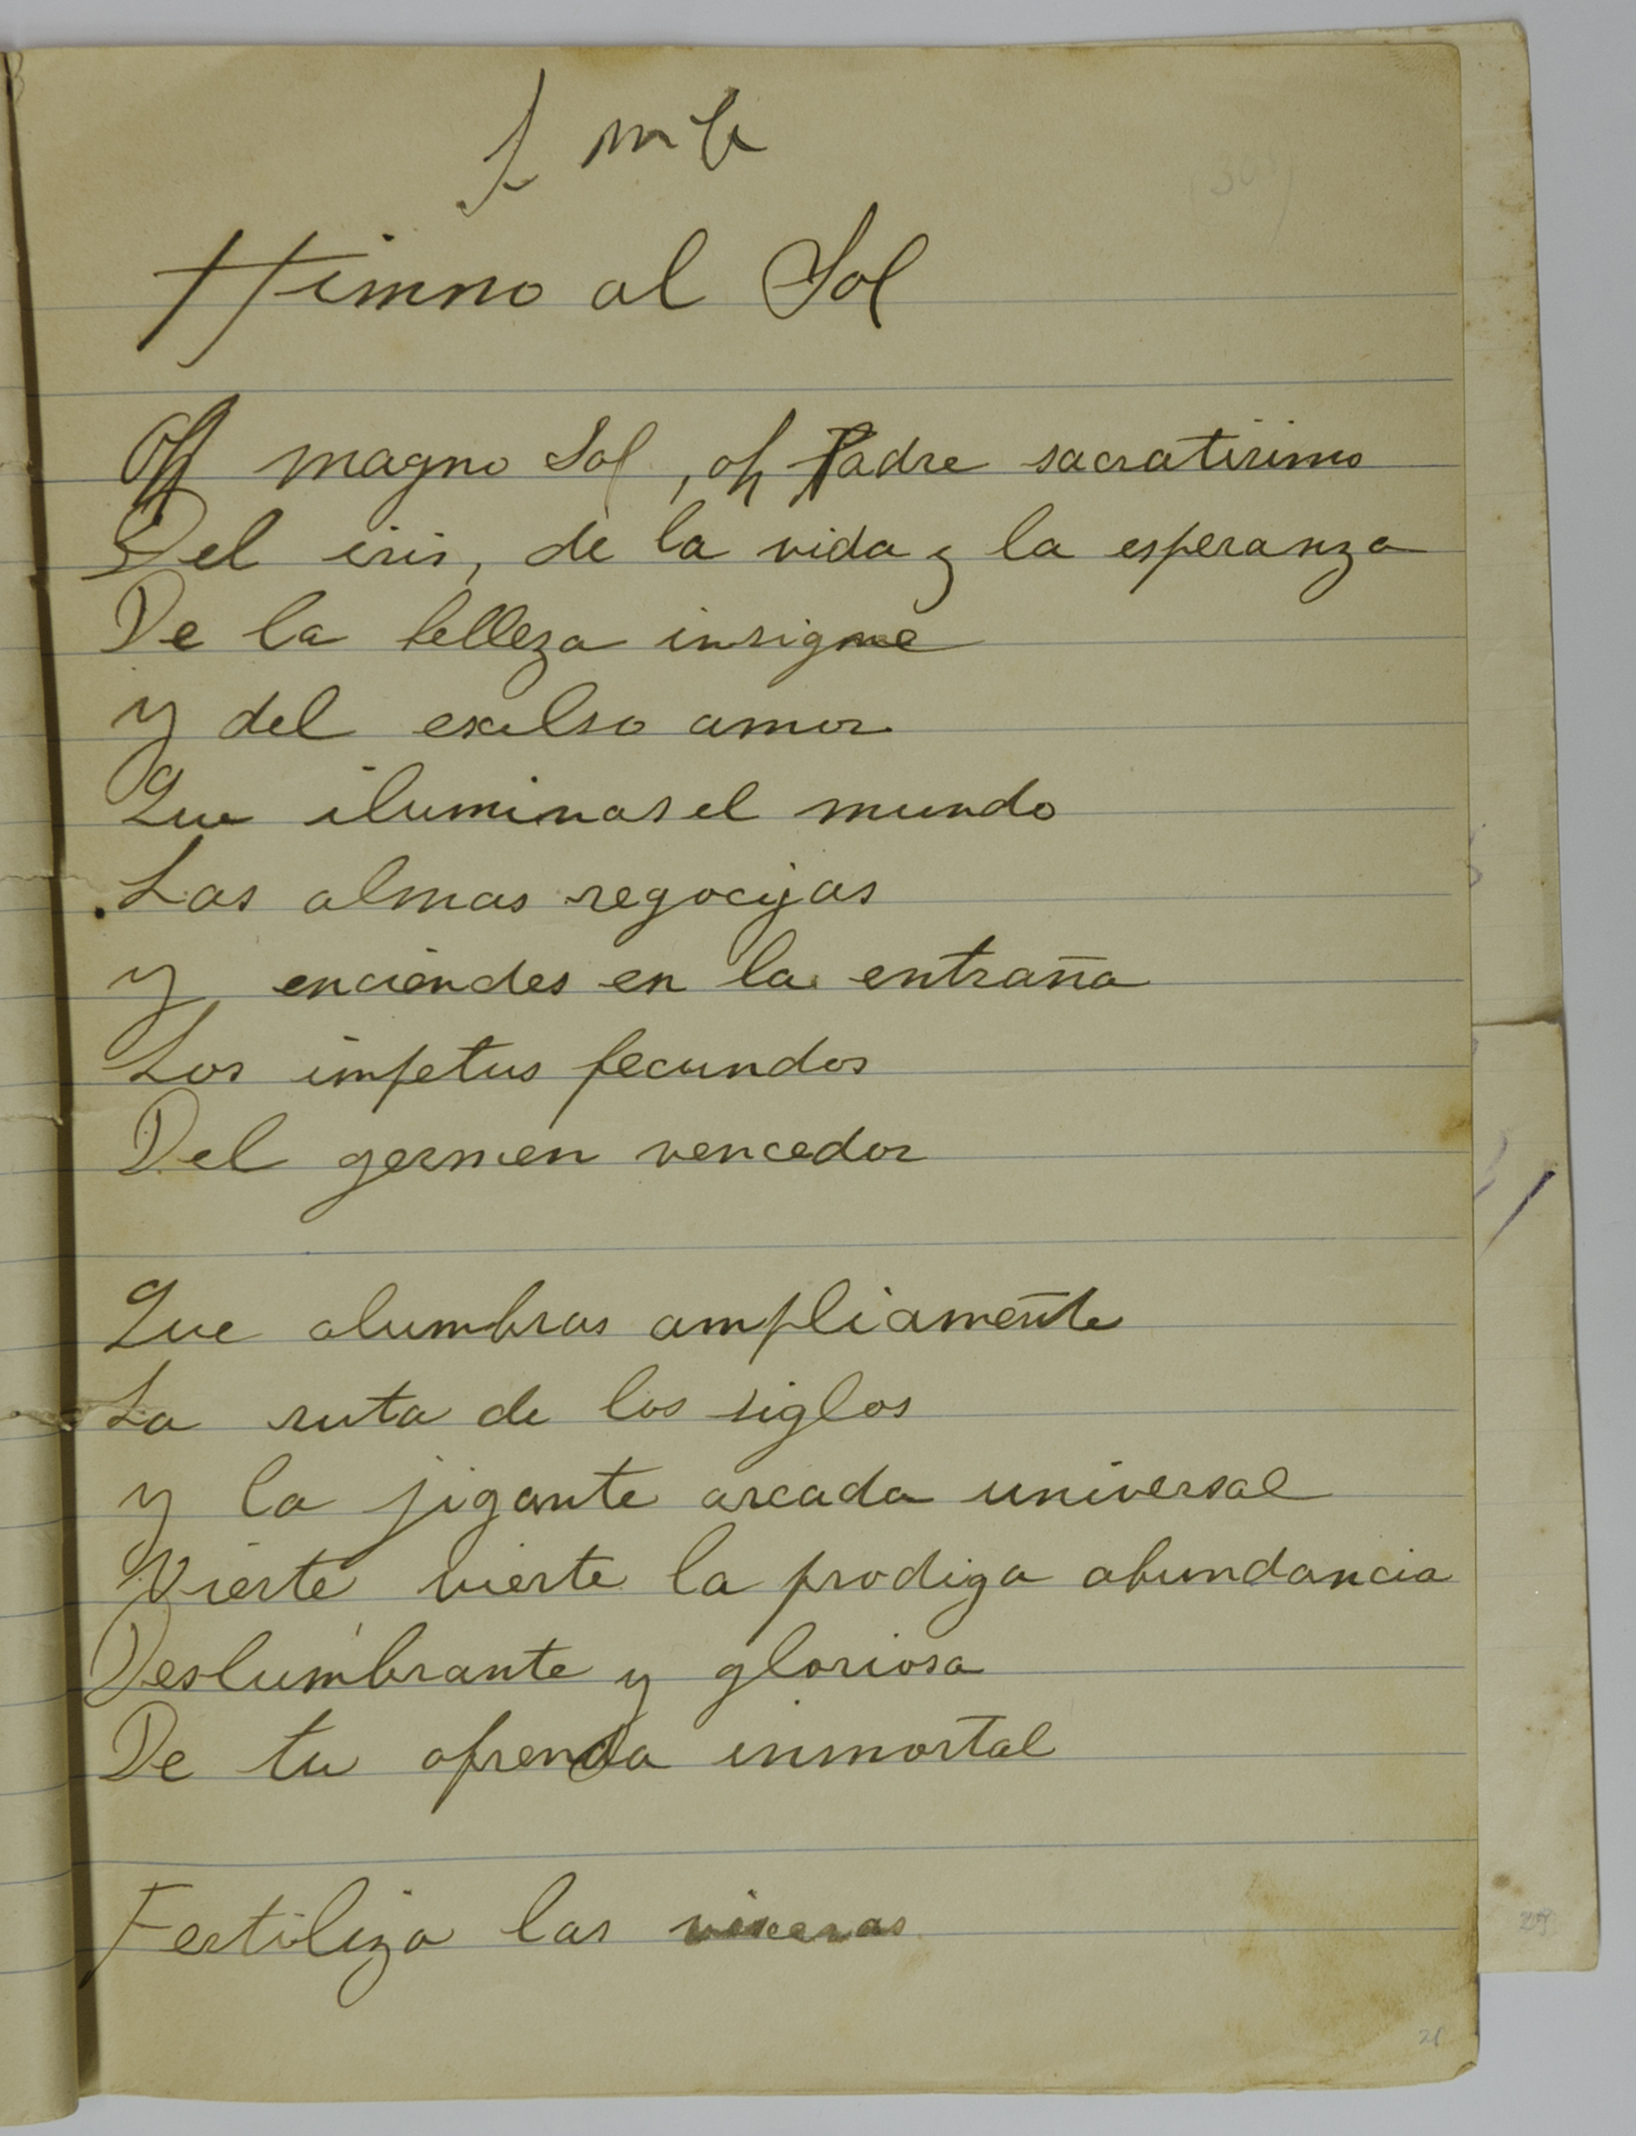 Himno al Sol
Oh magno Sol, oh Padre sacratisimo
Del iris, de la vida y la esperanza
De la belleza insigne
y del exelso amor
Que iluminas el mundo
Las almas regocijas
y enciendes en la entraña
Los impetus fecundos
Del germen vencedor
Que alumbras ampliamente
La ruta de los siglos
y la jigante arcada universal
Vierte vierte la prodiga abundancia
Deslumbrante y gloriosa
De tu ofrenda inmortal
Fertiliza las visceras